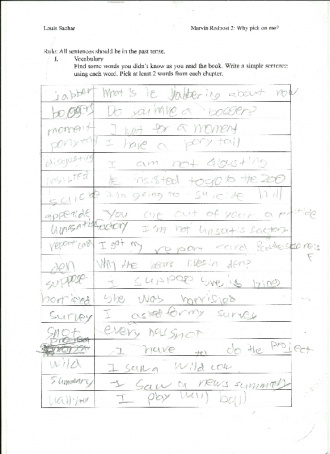 Louis Sachar Marvin Redpost 2: Why pick on me?
Rule: All sentences should be in the past tense.
I. Vocabulary
Find some words you didn't know as you read the book. Write a simple sentence
using each word. Pick at least 2 words from each chapter.
jabber What's le Jabbering about now
boogers Do you have a booger?
moment I just for a moment
ponytail I have a pony tail
disgusting I am not disgusting
insisted le insisted to go to the zoo
I'm going to
You are out of your
I'm not
report card I got my report card
den Why the lives in den?
suppose I suppose she is
horrified she was horrified
survey I asked for my survey
snot every has snot
project I have to do the project
wild I saw a wild cow
summary I saw a news summary
wall ball I play wall ball